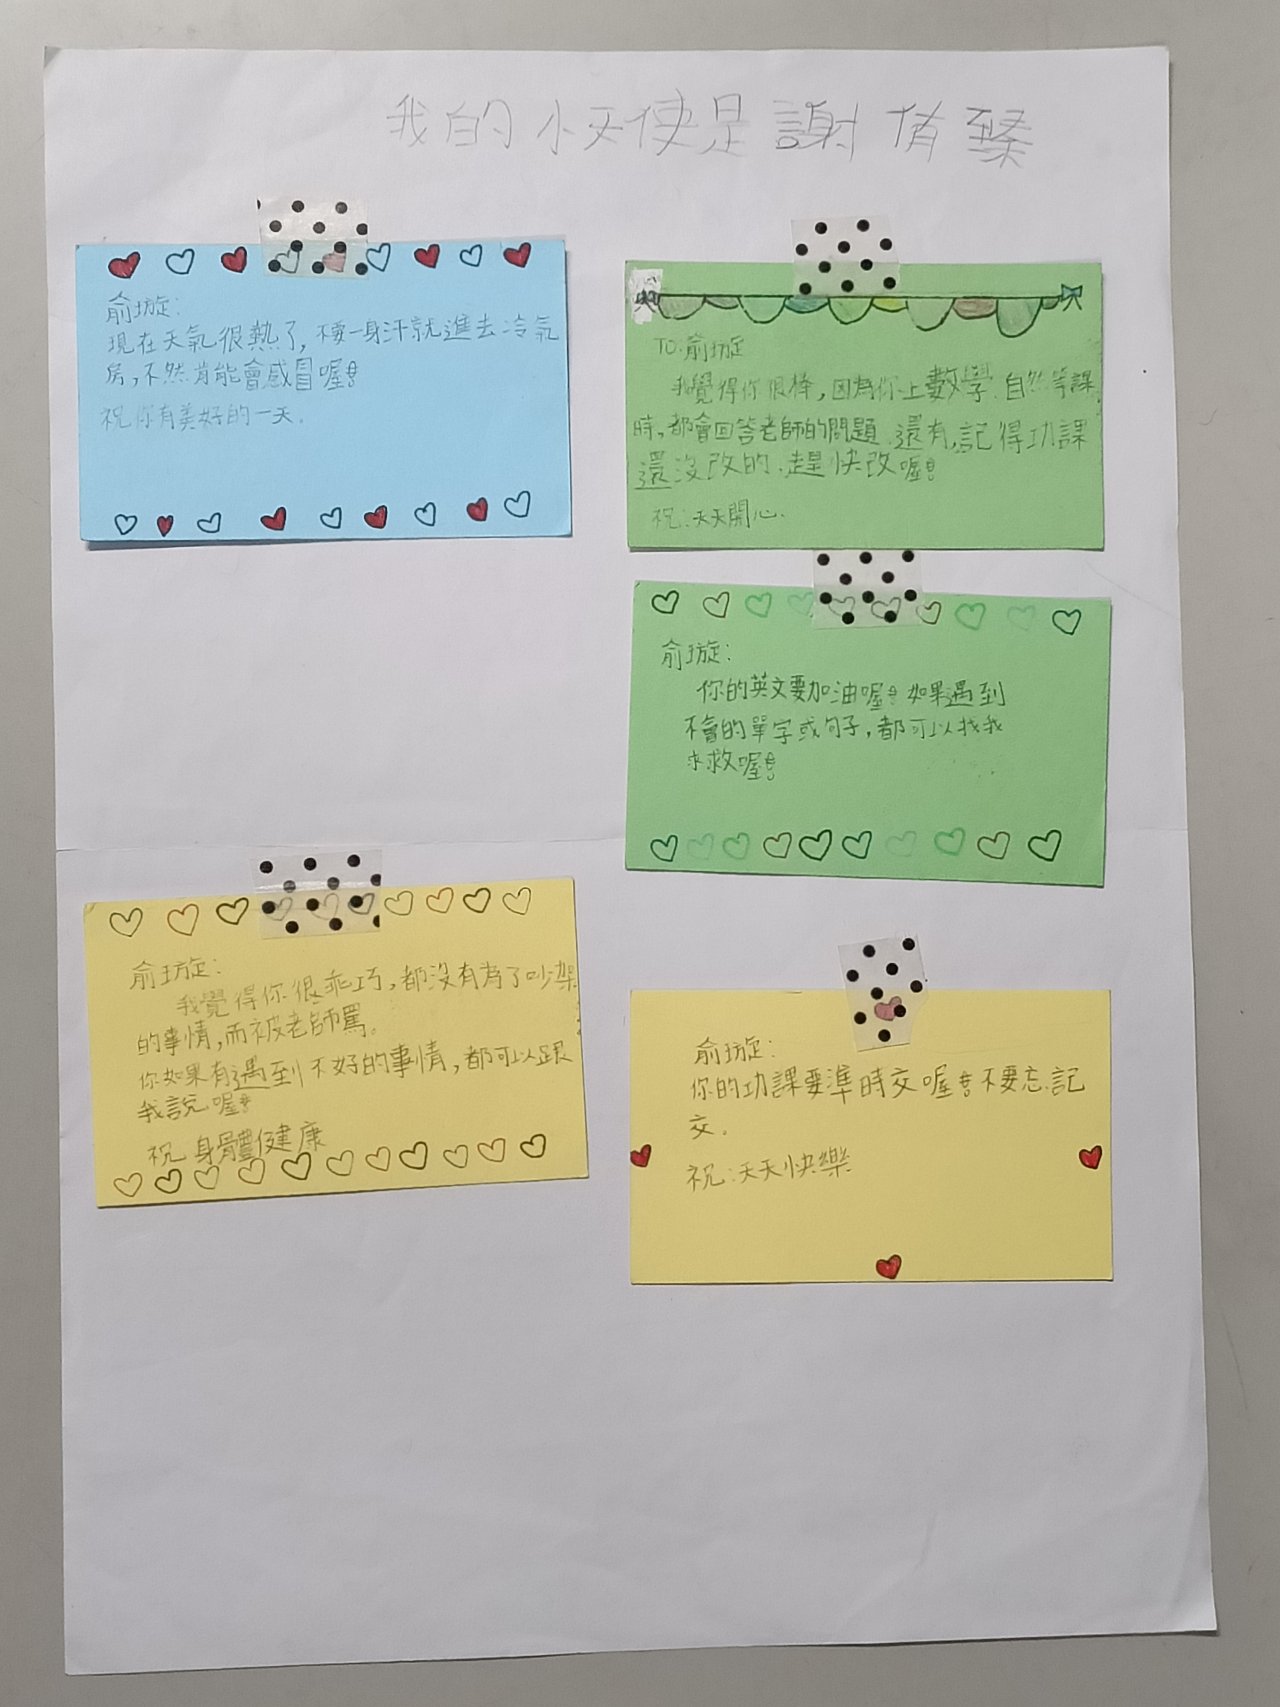 我的小天使是謝侑臻
俞璇:
現在天氣很熱了,不要一身汗就進去冷氣
房,不然肯能會感冒喔!
祝你有美好的一天。
TO:俞璇
我覺得你很棒,因為你上數學、自然等課
時,都會回答老師的問題,還有,記得功課
還沒改的,趕快改喔!
祝:天天開心。
俞璇:
你的英文要加油喔!如果遇到
不會的單字或句子,都可以找我
求救喔!
俞璇:
我覺得你很乖巧,都沒有為了吵架
的事情,而被老師罵。
你如果有遇到不好的事情,都可以跟
我說喔!
祝 身體健康
俞璇:
你的功課要準時交喔!不要忘記
交。
祝:天天快樂